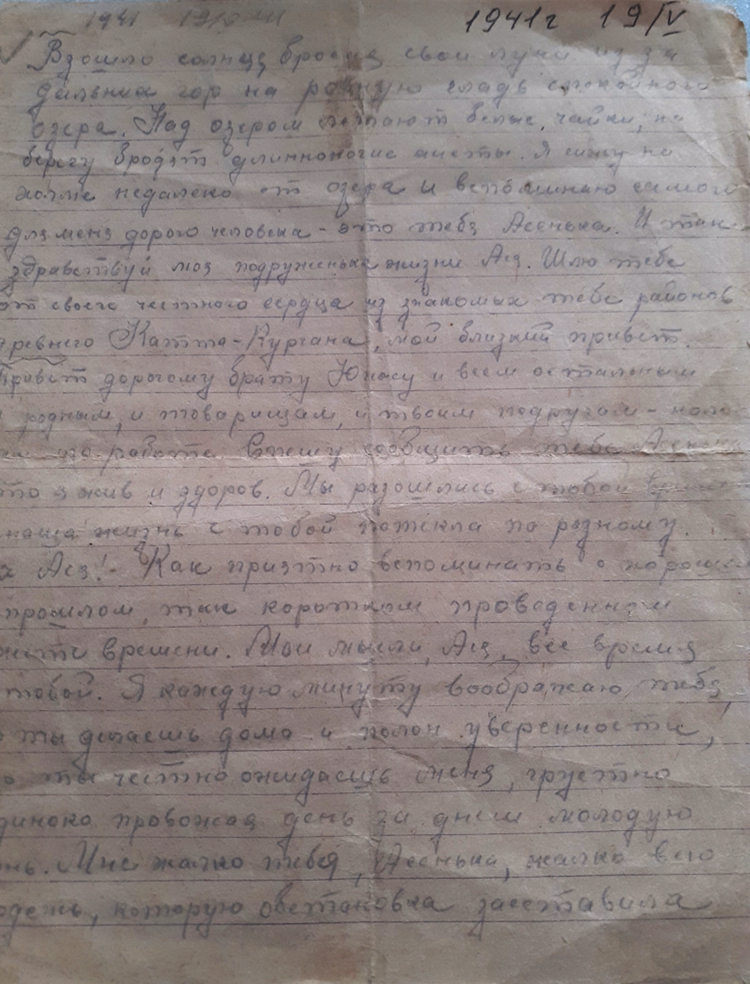 1941 1941г 19/IV
Взошло солнце бросив свои лучи из за
дальних гор на ровную гладь спокойного
озера. Над озером летают белые чайки, на
берегу бродят длинноногие аисты. Я сижу на
холме недалеко от озера и вспоминаю самого
для меня дорого человека - это тебя Асенька. И так
здравствуй моя подруженька жизни Ася. Шлю тебе
от своего честного сердца из знакомых тебе районов
древнего Катта-Кургана, мой близкий привет.
Привет дорогому брату Юнасу и всем остальным
родным, и товарищам, и твоим подругам -
работе. Спешу сообщить тебе Асенька
что я жив и здоров. Мы разошлись с тобой
наша жизнь с тобой потекла по разному.
х Ася! - Как приятно вспоминать о хорошем
прошлом, так коротком проведенном
времени. Мои мысли, Ася, все время
тобой. Я каждую минуту воображаю тебя,
ты делаешь дома и полон уверенности,
о ты честно ожидаешь меня, грустно
диноко провожая день за днем молодую
нь. Мне жалко тебя, Асенька, жалко всю
одежь, которую обстановка засставила